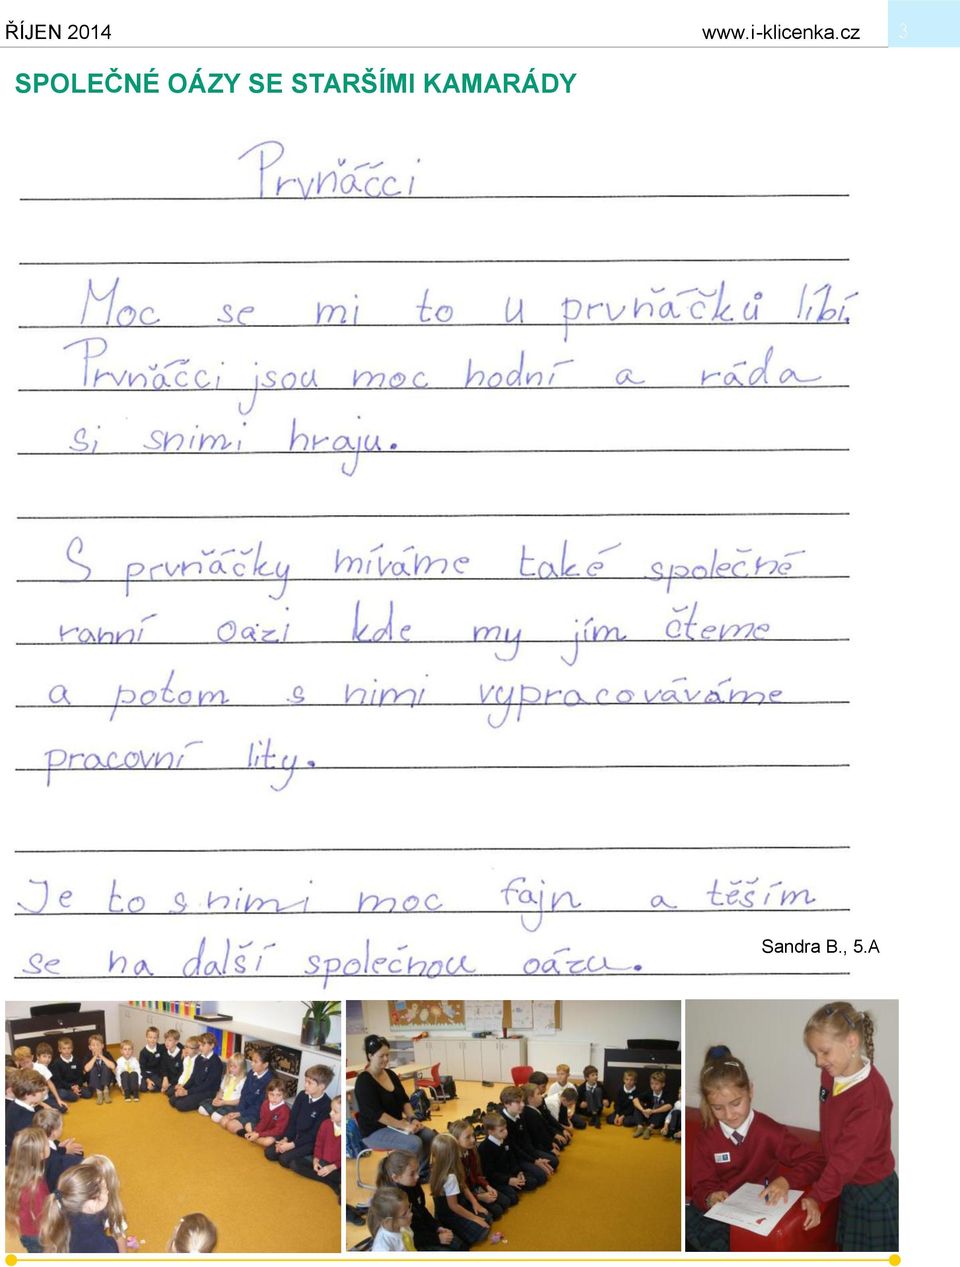 ŘÍJEN 2014 www.i-klicenka.cz 3
SPOLEČNÉ OÁZY SE STARŠÍMI KAMARÁDY
Prvňáčci
Moc se mi to u prvňáčků líbí.
Prvňáčci jsou moc hodní a ráda
si snimi hraju.
S prvňáčky míváme také společné
ranní oázi kde my jím čteme
a potom s nimi vypracováváme
pracovní lity.
Je to s nimi moc fajn a těším
se na další společnou oázu.
Sandra B., 5.A